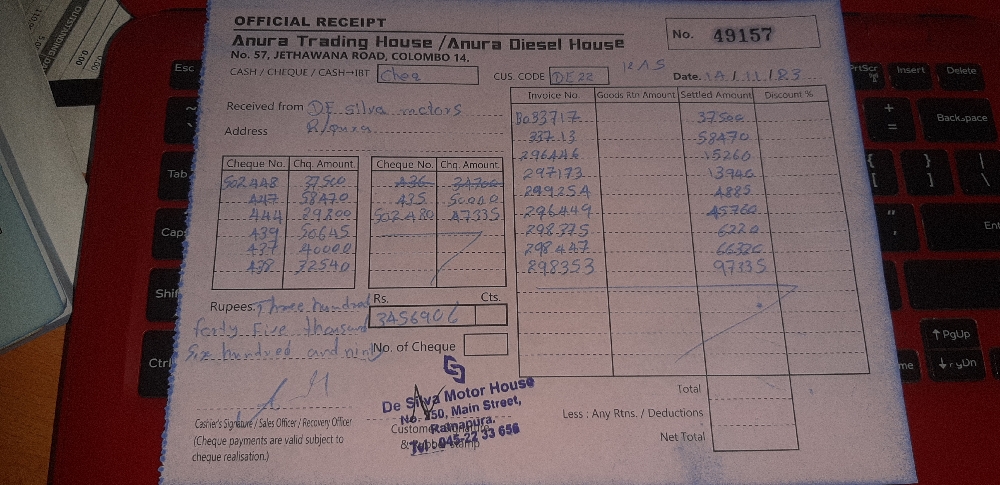 OFFICIAL RECEIPT
Anura Trading House / Anura Diesel House
No. 57, JETHAWANA ROAD, COLOMBO 14.
No. 49157
CASH / CHEQUE / CASH→IBT Cheq
CUS. CODE DE 22
Date.
Received from DE silva motors
Address
Cheque No. Chq. Amount
502448 37500
447 58470
444 29800
439 50645
437 40000
438 32540
Cheque No. Chq. Amount
436 34700
435 50000
502480 47335
Invoice No. Goods Rtn Amount Settled Amount Discount %
B033717 37500
33713 58470
296446 15260
297173 13940
299254 4885
296449 45760
298375 6220
298447 66320
298353 97335
Rupees. Three hundred
forty Five thousand
Six hundred and ninty
Rs. Cts.
345690
No. of Cheque
Total
Less : Any Rtns. / Deductions
Net Total
Cashier's Signature / Sales Officer / Recovery Officer
(Cheque payments are valid subject to
cheque realisation.)
De Silva Motor House
No. 250, Main Street,
Ratnapura.
Tel : 045-22 33 656
PrtScr
Insert
Delete
Backspace
Enter
Esc
Tab
Caps
Shift
Ctrl
PgUp